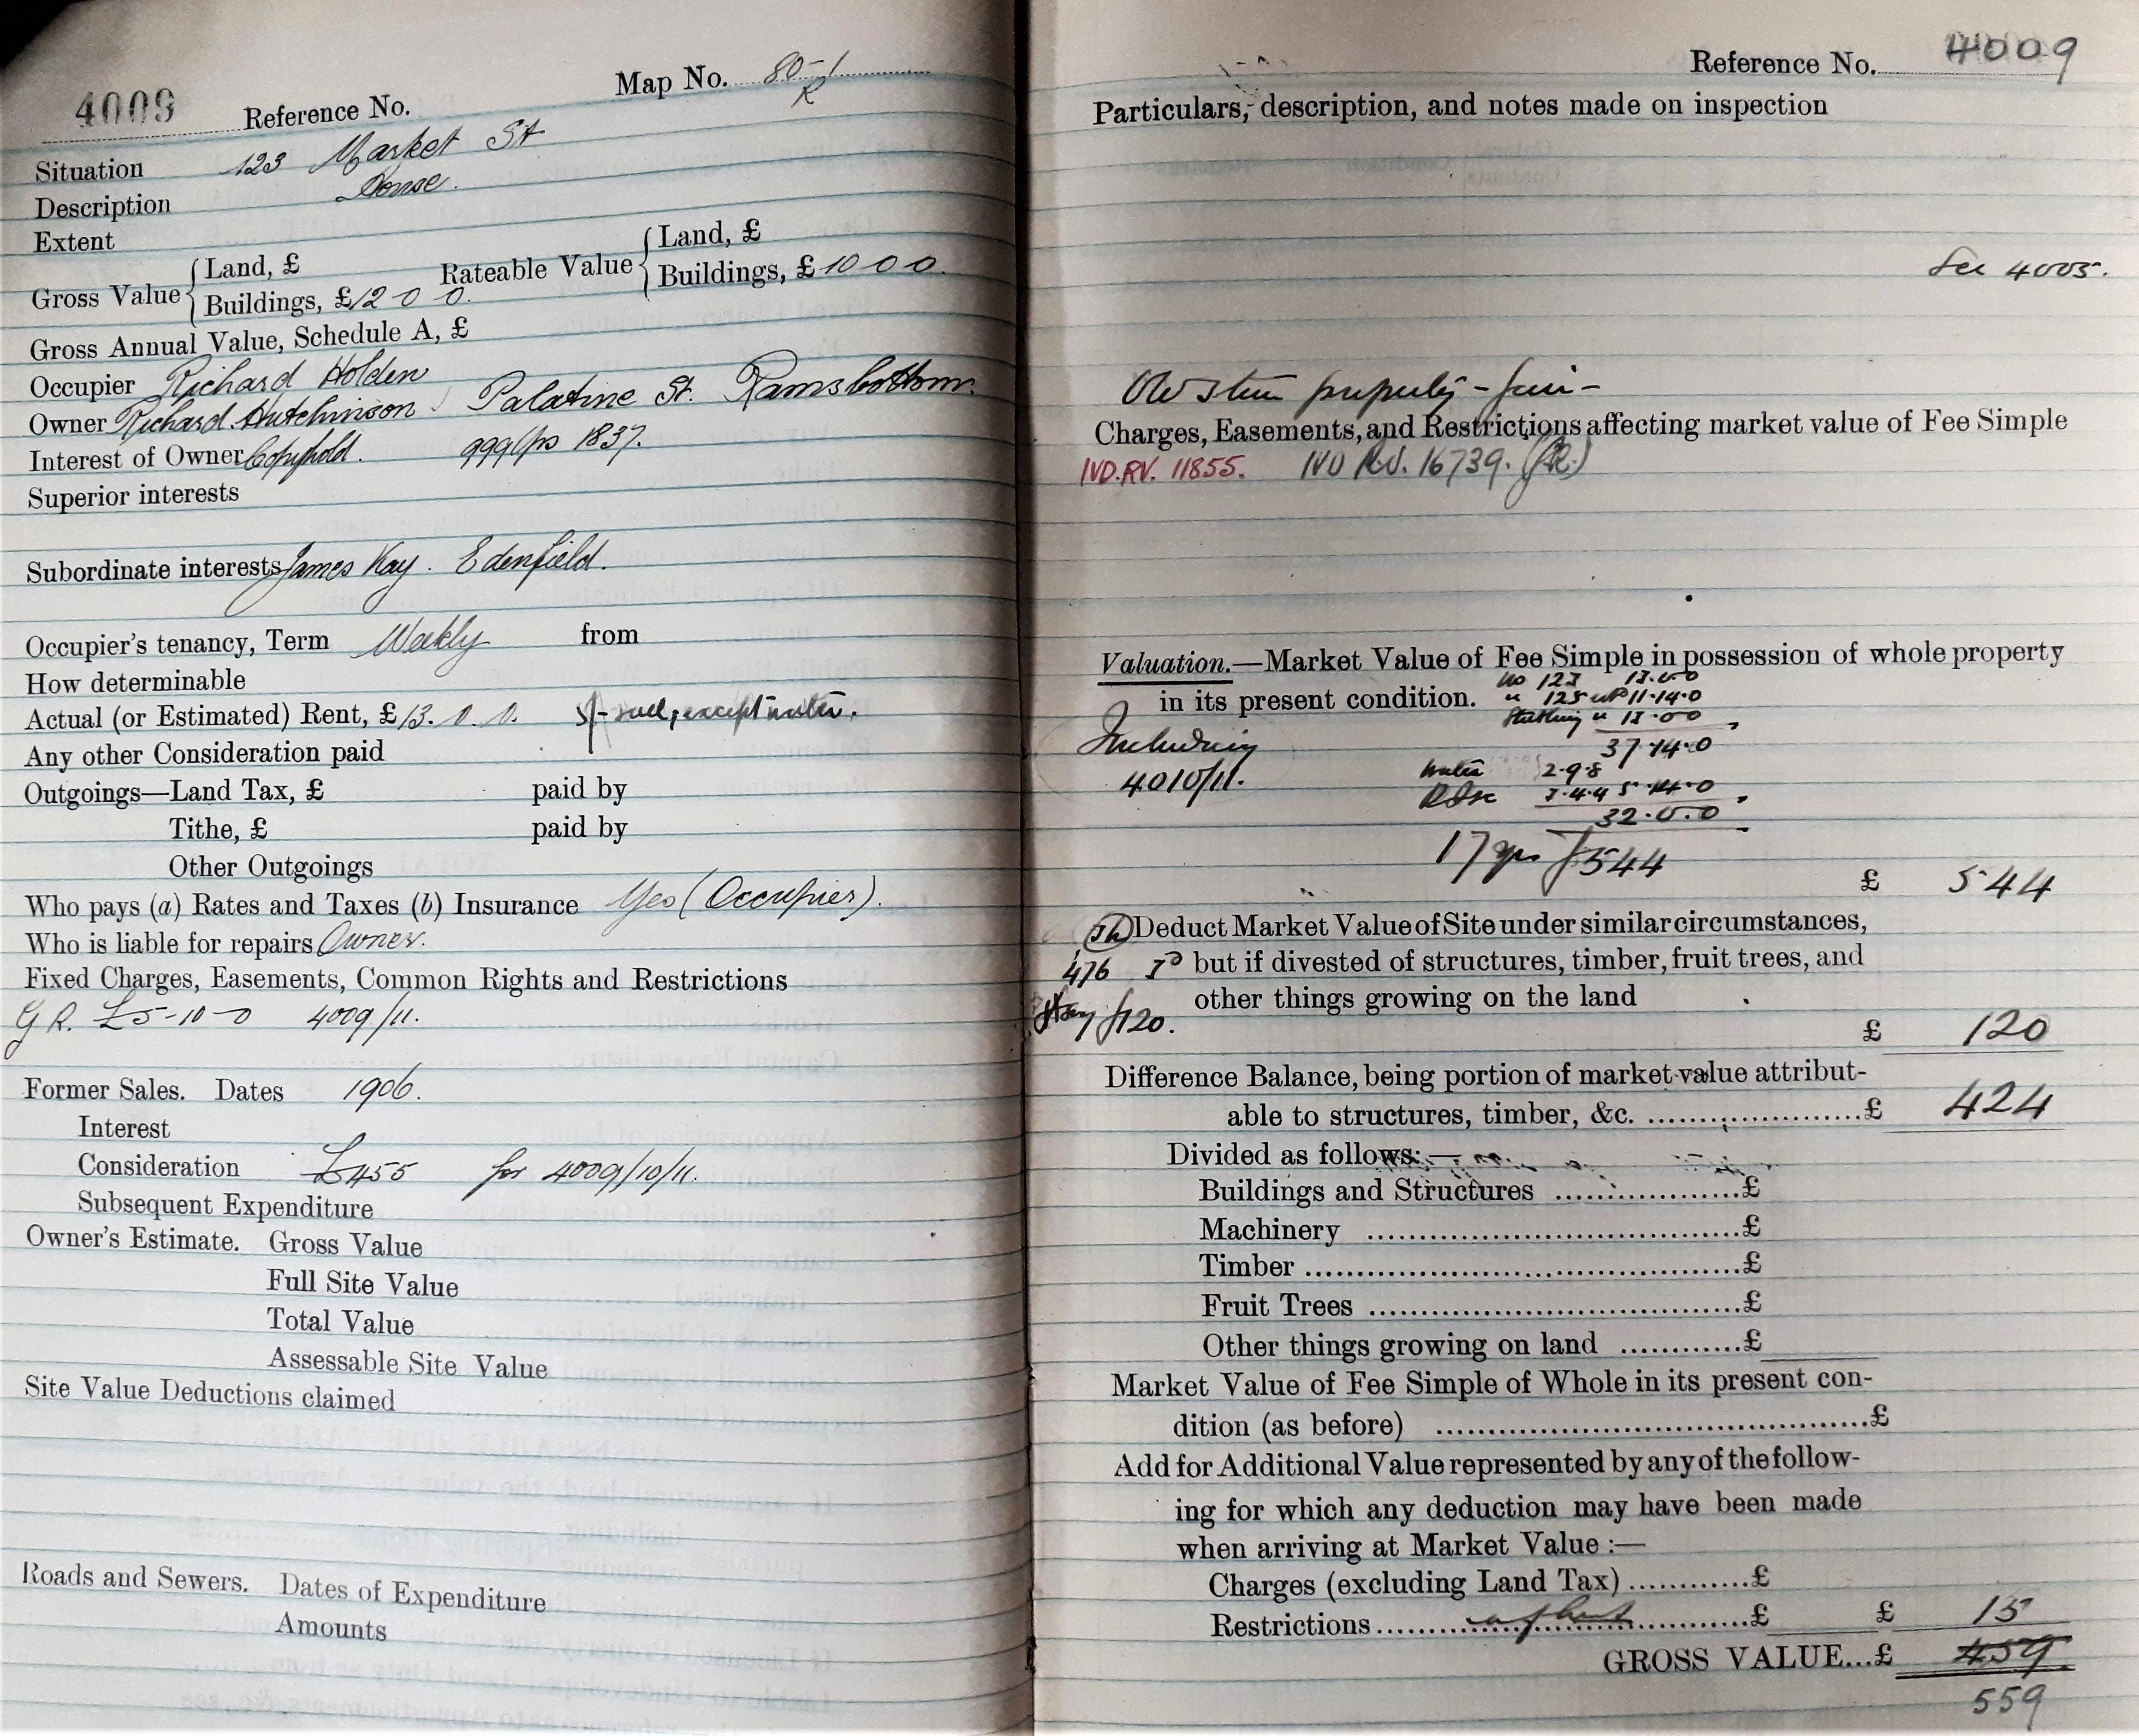 4009 Reference No. Map No. 80-1
R
Situation 123 Market St
Description House.
Extent
Gross Value { Land, £ Rateable Value { Land, £
Buildings, £12 0 0. Buildings, £10 0 0.
Gross Annual Value, Schedule A, £
Occupier Richard Holden
Owner Richard Hutchinson, Palatine St. Ramsbottom.
Interest of Owner Copyhold. 999 yrs 1837.
Superior interests
Subordinate interests James Kay. Edenfield.
Occupier's tenancy, Term Weekly from
How determinable
Actual (or Estimated) Rent, £13. 0. 0. 5/- except water.
Any other Consideration paid
Outgoings—Land Tax, £ paid by
Tithe, £ paid by
Other Outgoings
Who pays (a) Rates and Taxes (b) Insurance Yes (Occupier).
Who is liable for repairs Owner.
Fixed Charges, Easements, Common Rights and Restrictions
G R. £5-10-0 4009/11.
Former Sales. Dates 1906.
Interest
Consideration £455 for 4009/10/11.
Subsequent Expenditure
Owner's Estimate. Gross Value
Full Site Value
Total Value
Assessable Site Value
Site Value Deductions claimed
Roads and Sewers. Dates of Expenditure
Amounts
Reference No. 4009
Particulars, description, and notes made on inspection
See 4005.
Old stone property - fair -
Charges, Easements, and Restrictions affecting market value of Fee Simple
IVD.RV. 11855. IVD RV. 16739.
Valuation.—Market Value of Fee Simple in possession of whole property
in its present condition. No 123 13.0.0
" 125 11.14.0
13.0.0
Including 37.14.0
4010/11. Water 2.9.8
3.4.4 5.14.0
32.0.0
17 yrs £544
£ 544
Deduct Market Value of Site under similar circumstances,
476 but if divested of structures, timber, fruit trees, and
other things growing on the land
Say £120.
£ 120
Difference Balance, being portion of market value attribut-
able to structures, timber, &c. ........................£ 424
Divided as follows:—
Buildings and Structures ....................£
Machinery ........................................£
Timber ..............................................£
Fruit Trees ........................................£
Other things growing on land ............£
Market Value of Fee Simple of Whole in its present con-
dition (as before) ..............................................£
Add for Additional Value represented by any of the follow-
ing for which any deduction may have been made
when arriving at Market Value :—
Charges (excluding Land Tax) ............£
Restrictions ....................................£ £ 15
GROSS VALUE...£ 459
559